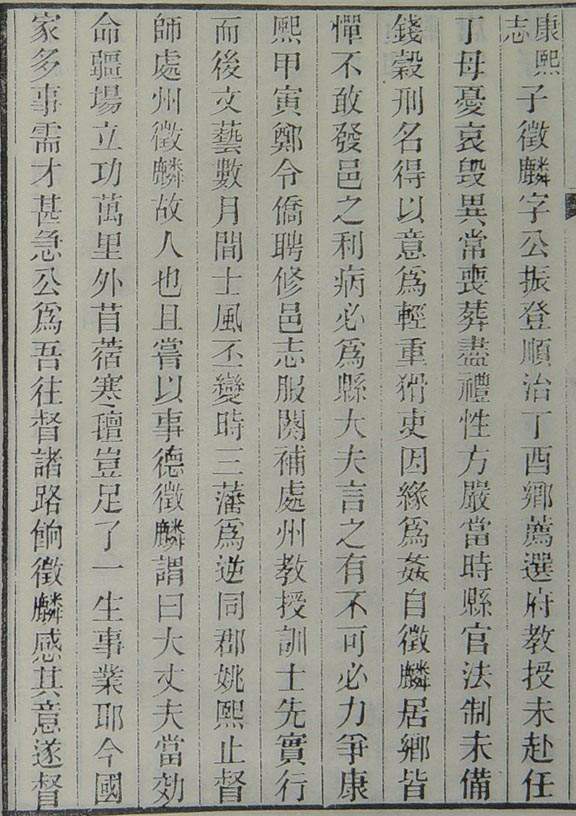 康熙志子徵麟字公振登順治丁酉鄉薦選府教授未赴任
丁母憂哀毁異常喪葬盡禮性方嚴當時縣官法制未備
錢穀刑名得以意爲輕重猾吏因緣爲姦自徵麟居鄉皆
憚不敢發邑之利病必爲縣大夫言之有不可必力爭康
熙甲寅鄭令僑聘修邑志服闋補處州教授訓士先實行
而後文藝數月間士風丕變時三藩爲逆同郡姚熙止督
師處州徵麟故人也且嘗以事德徵麟謂曰大丈夫當効
命疆場立功萬里外苜蓿寒氊豈足了一生事業耶今國
家多事需才甚急公爲吾往督諸路餉徵麟感其意遂督